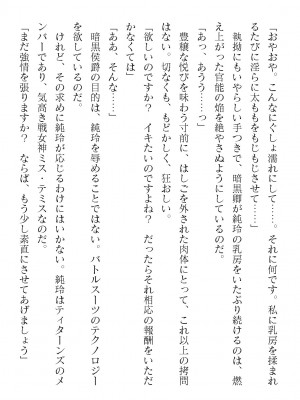 「おやおや。こんなにぐしょ濡れにして……。それに何です。私に乳房を揉まれ
るたびに淫らに太ももをもじもじさせて……」
執拗にもいやらしい手つきで、暗黒卿が純玲の乳房をいたぶり続けるのは、燃
え上がった官能の焔を絶やさぬようにしているのだ。
「あっ、あうう……っ」
豊穣な悦びを味わう寸前に、はしごを外された肉体にとって、これ以上の拷問
はない。切なくも、もどかしく、狂おしい。
「欲しいのですか？　イキたいのですよね？　だったらそれ相応の報酬をいただ
かなくては」
「ああ、そんな……」
暗黒侯爵の目的は、純玲を辱めることではない。バトルスーツのテクノロジー
を欲しているのだ。
けれど、その求めに純玲が応じるわけにはいかない。純玲はティターンズのメ
ンバーであり、気高き戦女神ミス・テミスなのだ。
「まだ強情を張りますか？　ならば、もう少し素直にさせてあげましょう」